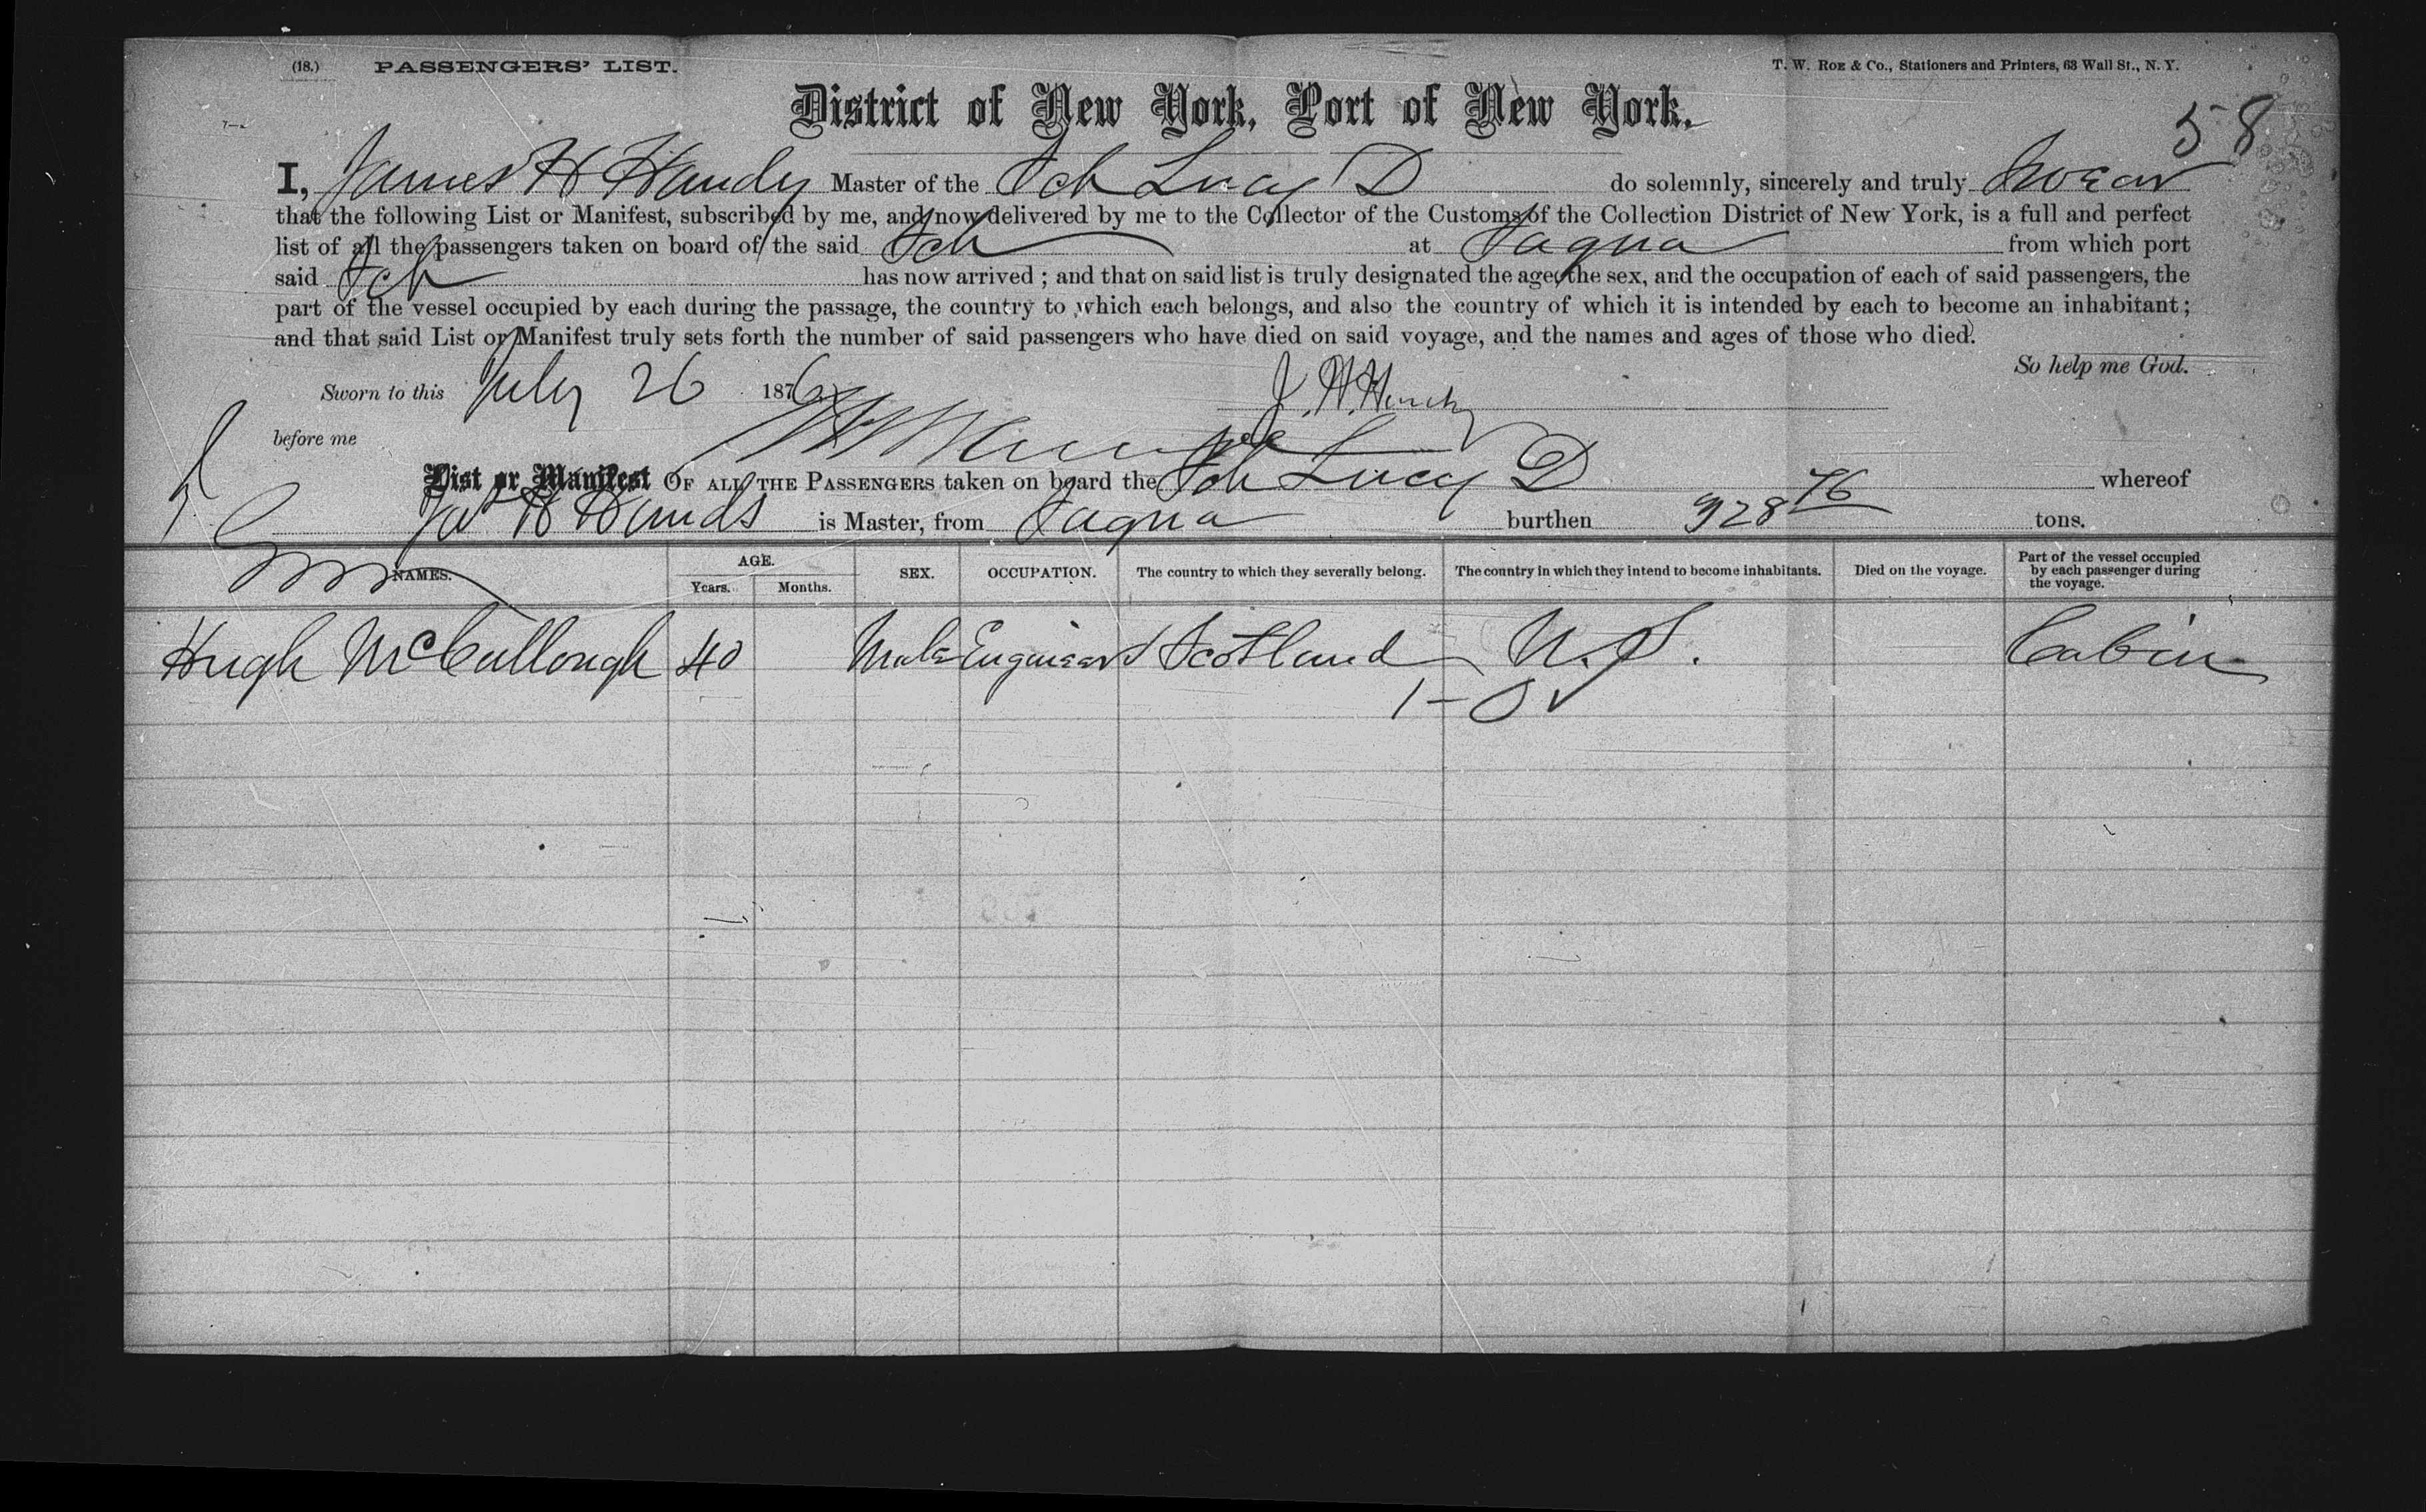 (18.) PASSENGERS' LIST.
T. W. ROE & Co., Stationers and Printers, 63 Wall St., N. Y.
District of New York, Port of New York.
58
I, James H Handy Master of the Sch Lucy D do solemnly, sincerely and truly swear
that the following List or Manifest, subscribed by me, and now delivered by me to the Collector of the Customs of the Collection District of New York, is a full and perfect
list of all the passengers taken on board of the said Sch at Sagua from which port
said Sch has now arrived ; and that on said list is truly designated the age, the sex, and the occupation of each of said passengers, the
part of the vessel occupied by each during the passage, the country to which each belongs, and also the country of which it is intended by each to become an inhabitant ;
and that said List or Manifest truly sets forth the number of said passengers who have died on said voyage, and the names and ages of those who died.
So help me God.
Sworn to this July 26 1876
J. H. Handy
before me
List or Manifest OF ALL THE PASSENGERS taken on board the Sch Lucy D whereof
Jas H Hands is Master, from Sagua burthen 328 76 tons.
NAMES. AGE. Years. Months. SEX. OCCUPATION. The country to which they severally belong. The country in which they intend to become inhabitants. Died on the voyage. Part of the vessel occupied by each passenger during the voyage.
Hugh McCullough 40 Male Engineer Scotland U.S. Cabin